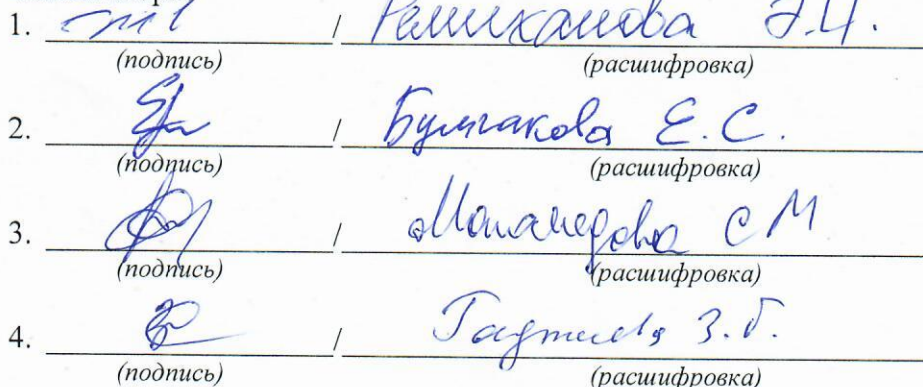 1. / Ремиханова Э.Ч.
(подпись) (расшифровка)
2. / Булгакова Е.С.
(подпись) (расшифровка)
3. / Магамедова С М
(подпись) (расшифровка)
4. / Гаджиева З.Б.
(подпись) (расшифровка)